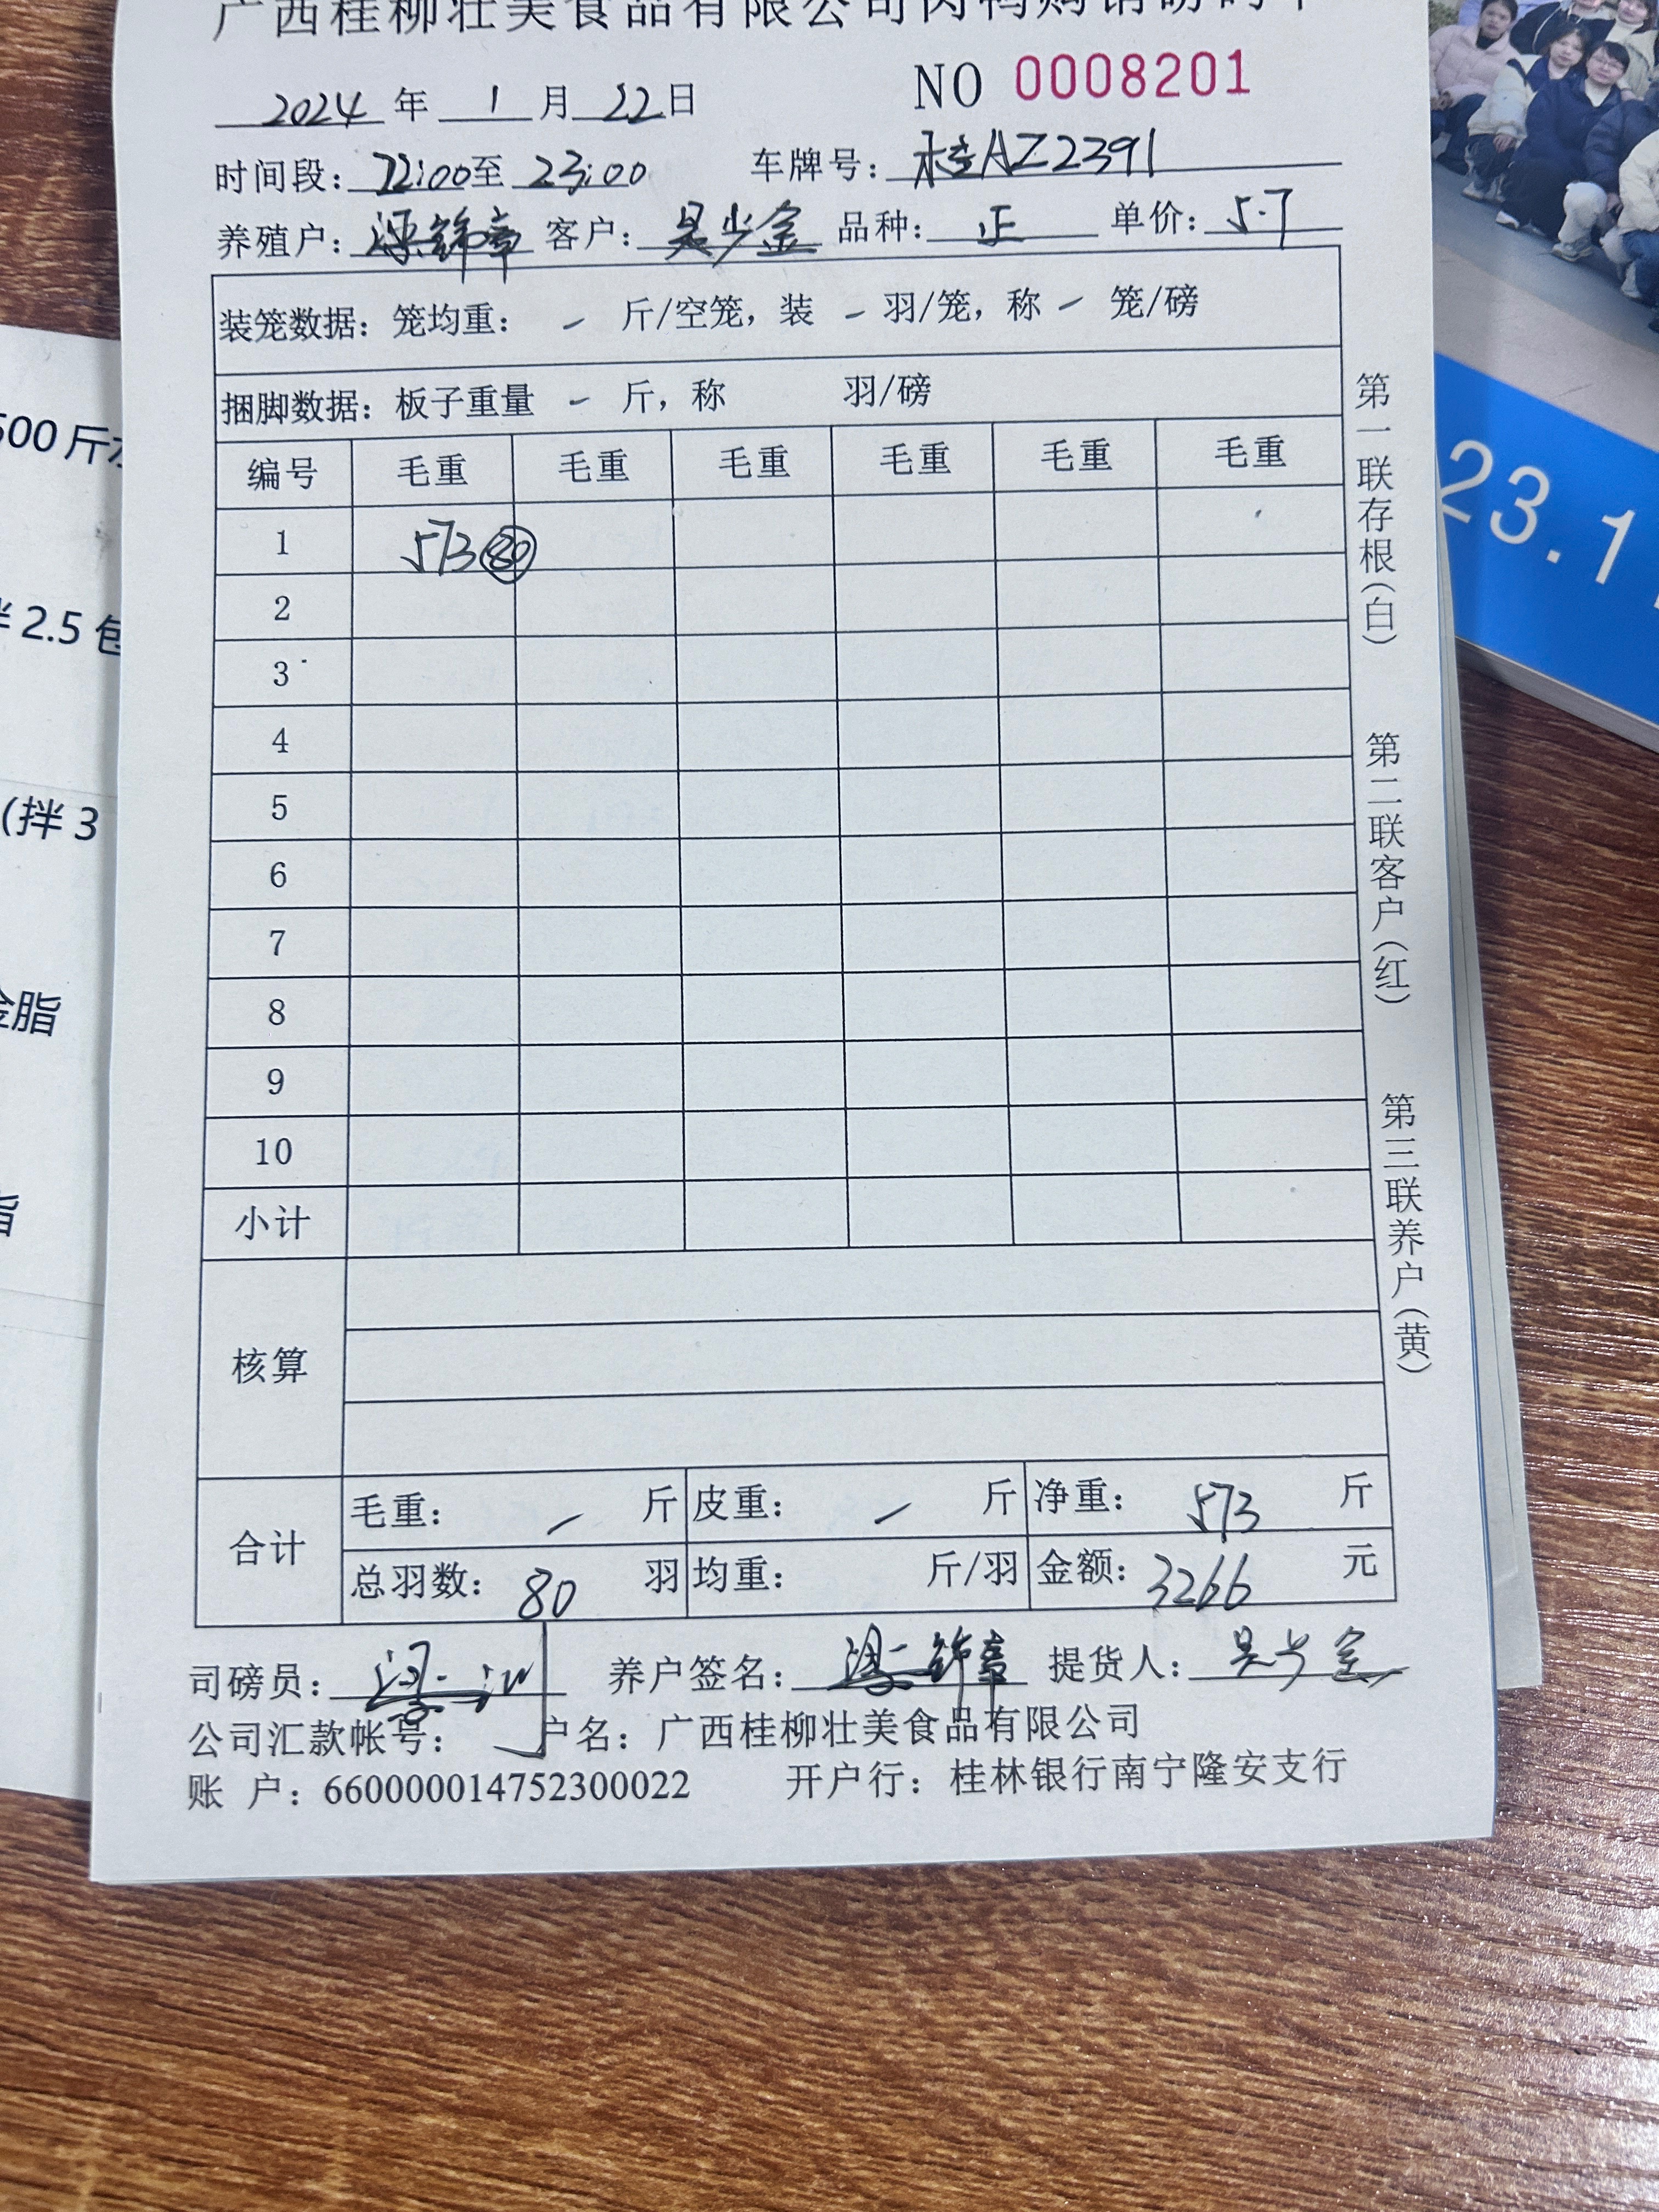 广西桂柳壮美食品有限公司肉鸭购销磅码单
2024 年 1 月 22 日 NO 0008201
时间段: 22:00 至 23:00 车牌号: 桂AZ2391
养殖户: 梁锦章 客户: 吴少金 品种: 正 单价: 5.7
装笼数据: 笼均重: - 斤/空笼, 装 - 羽/笼, 称 - 笼/磅
捆脚数据: 板子重量 - 斤, 称 羽/磅
编号 毛重 毛重 毛重 毛重 毛重 毛重
1 573 80
2
3
4
5
6
7
8
9
10
小计
核算
合计
毛重: - 斤 皮重: - 斤 净重: 573 斤
总羽数: 80 羽 均重: 斤/羽 金额: 3266 元
司磅员: 养户签名: 梁锦章 提货人: 吴少金
公司汇款帐号: 户名: 广西桂柳壮美食品有限公司
账 户: 660000014752300022 开户行: 桂林银行南宁隆安支行
第一联存根(白) 第二联客户(红) 第三联养户(黄)
500 斤
2.5 包
(拌 3
脂
脂
23.1